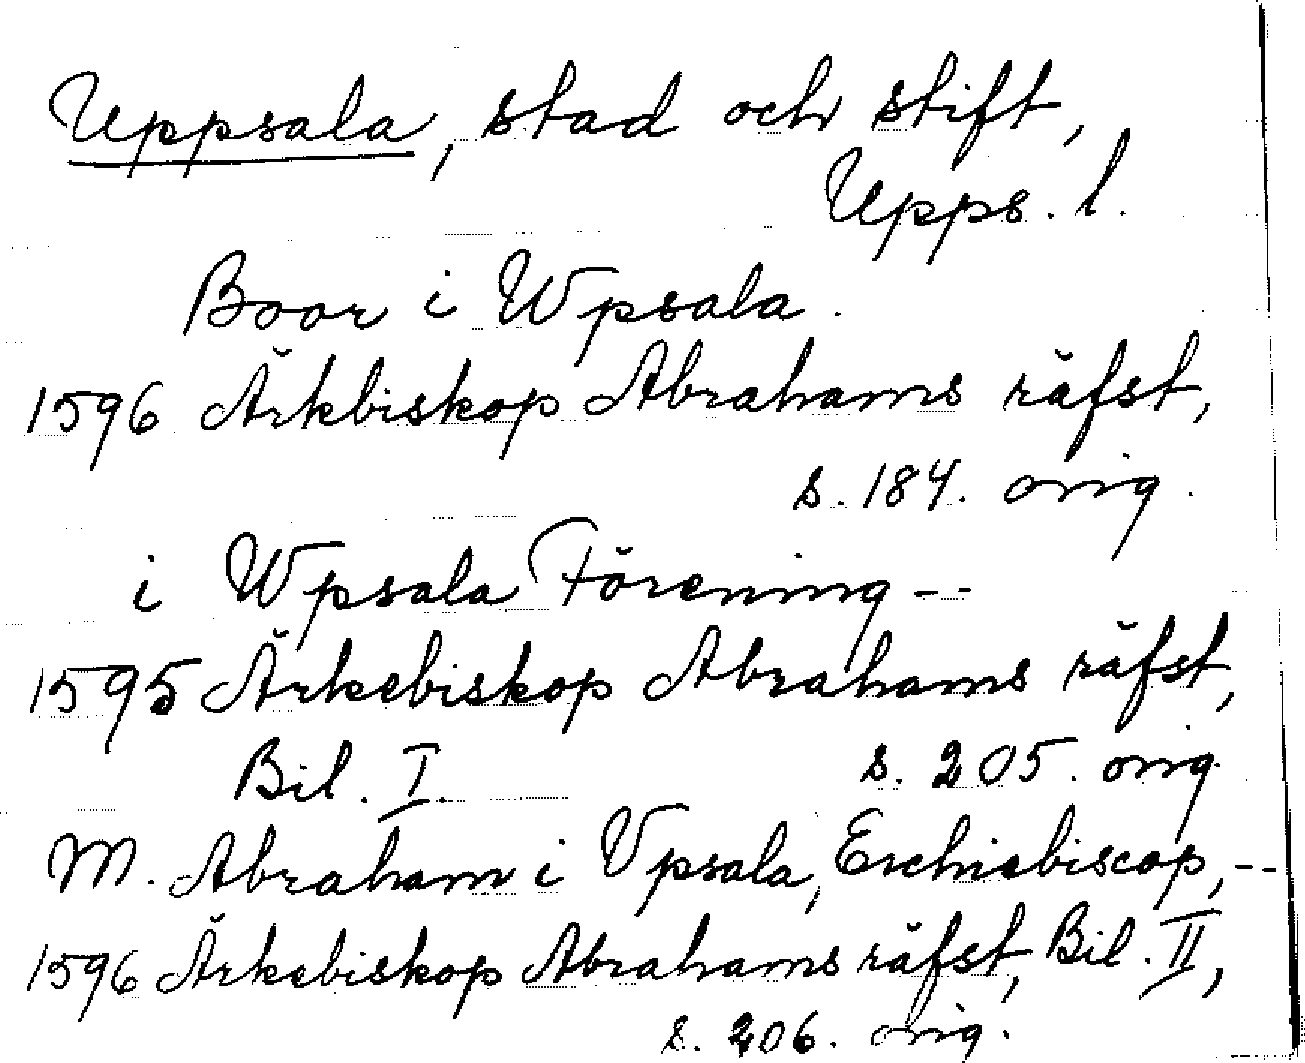 Uppsala, stad och stift,
Upps. l.
Boor i Wpsala.
1596 Ärkbiskop Abrahams räfst,
s. 184. orig.
i Wpsala Förening --
1595 Ärkebiskop Abrahams räfst,
Bil. I. s. 205. orig.
M. Abraham i Vpsala, Erchiebiscop, --
1596 Ärkebiskop Abrahams räfst, Bil. II,
s. 206. orig.